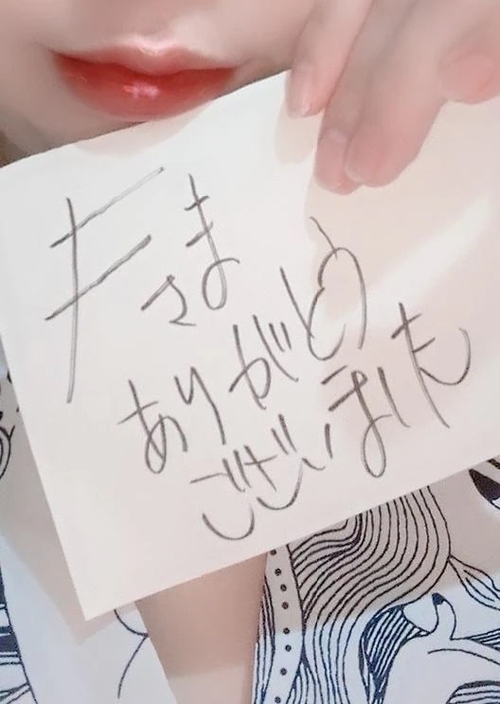 Fさま
ありがとう
ございました